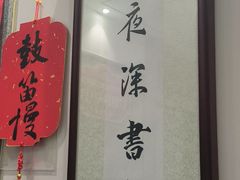 鼓笛慢
夜深書